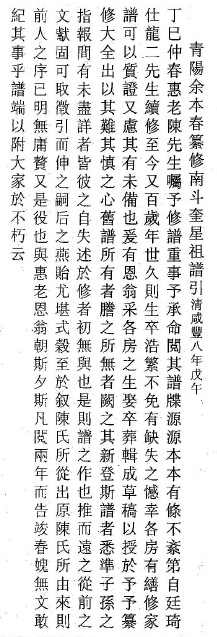 青陽余本春纂修南斗奎星祖譜引清咸豐八年戊午
丁巳仲春惠老陳先生囑予修譜重事予承命閱其譜牒源源本本有條不紊第自廷琦
仕龍二先生續修至今又百歲年世久則生卒浩繁不免有缺失之憾幸各房有繕修家
譜可以質證又慮其有未備也爰有恩翁采各房之生娶卒葬輯成草稿以授於予予纂
修大全出以其難其慎之心舊譜所有者謄之所無者闕之其新登斯譜者悉準子孫之
指報間有未盡詳者皆彼之自失述於修者初無與也是則譜之作也推而遠之從前之
文獻固可取徵引而伸之嗣后之燕貽尤堪式穀至於叙陳氏所從出原陳氏所由來則
前人之序已明無庸贅又是役也與惠老恩翁朝斯夕斯凡閱兩年而告竣春媿無文敢
紀其事乎譜端以附大家於不朽云